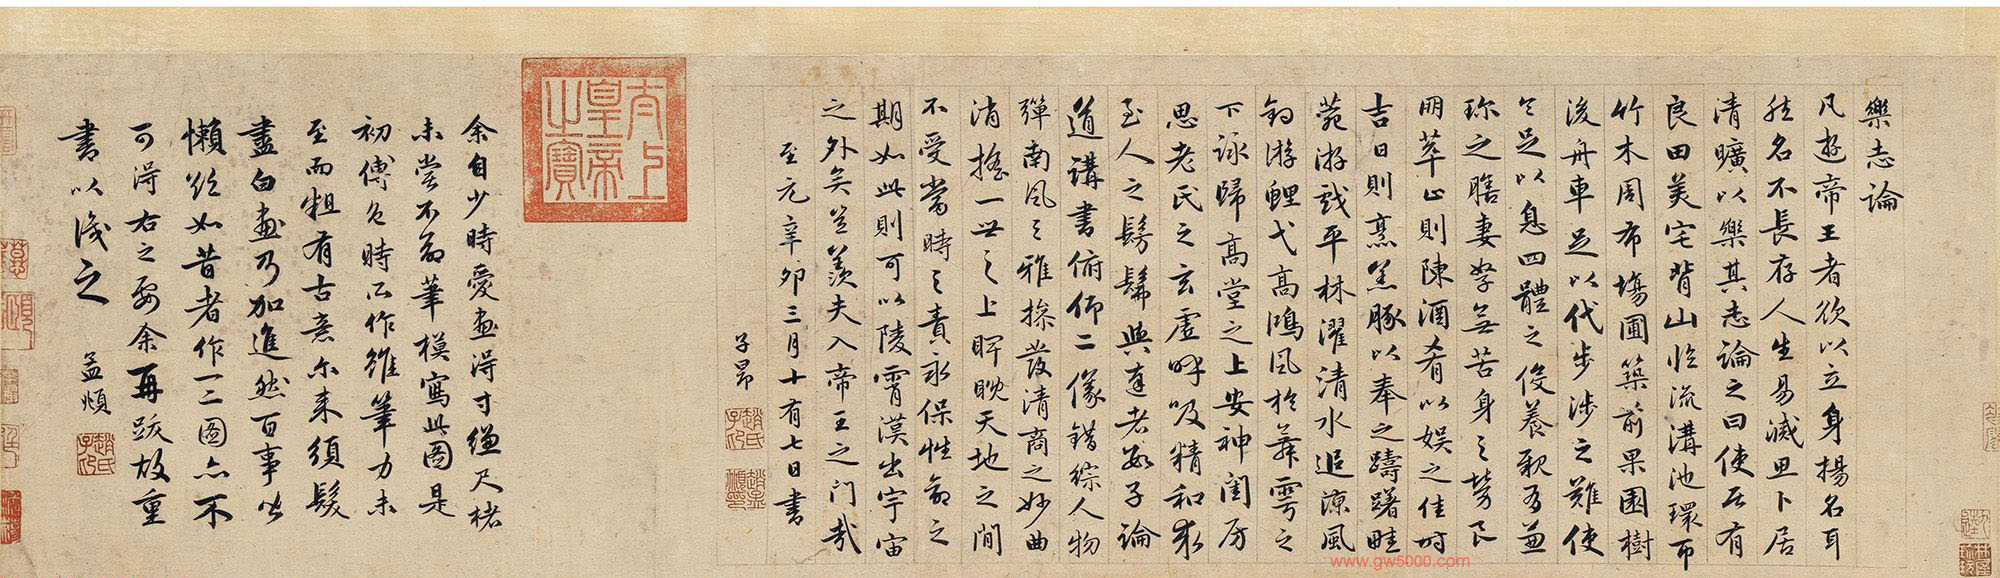 樂志論
凡遊帝王者欲以立身揚名耳
然名不長存人生易滅思卜居
清曠以樂其志論之曰使居有
良田美宅背山臨流溝池環帀
竹木周布場圃築前果園樹
後舟車足以代步涉之難使
令足以息四體之役養親有兼
珍之膳妻孥無苦身之勞良
朋萃止則陳酒肴以娛之佳時
吉日則烹羔豚以奉之躊躇畦
菀游戲平林濯清水追涼風
釣游鯉弋高鴻風於舞雩之
下詠歸高堂之上安神閨房
思老氏之玄虛呼吸精和求
至人之髣髴與達者數子論
道講書俯仰二儀錯綜人物
彈南風之雅操發清商之妙曲
消搖一世之上睥睨天地之間
不受當時之責永保性命之
期如此則可以陵霄漢出宇宙
之外矣豈羨夫入帝王之門哉
至元辛卯三月十有七日書
子昂
趙氏子昂
趙孟頫印
太上皇帝之寶
余自少時愛畫得寸縑尺楮
未嘗不命筆模寫此圖是
初傅色時所作雖筆力未
至而粗有古意尔來須髮
盡白畫乃加進然百事皆
懶欲如昔者作一二圖亦不
可得右之要余再跋故重
書以識之
孟頫
趙氏子昂
www.gw5000.com